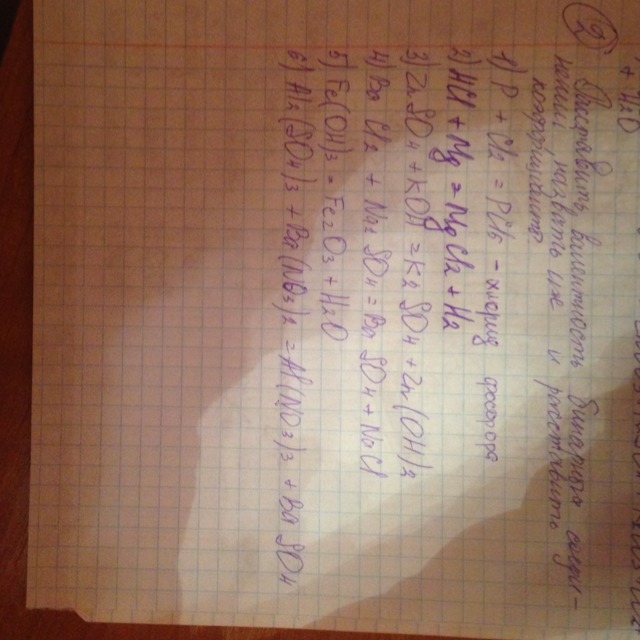 + H2O
② Расставить валентность соеди-
нений, назвать их и расставить
1) P + Cl2 = PCl5 - хлорид фосфора
2) HCl + Mg = MgCl2 + H2
3) ZnSO4 + KOH = K2SO4 + Zn(OH)2
4) BaCl2 + Na2SO4 = BaSO4 + NaCl
5) Fe(OH)3 = Fe2O3 + H2O
6) Al2(SO4)3 + Ba(NO3)2 = Al(NO3)3 + BaSO4